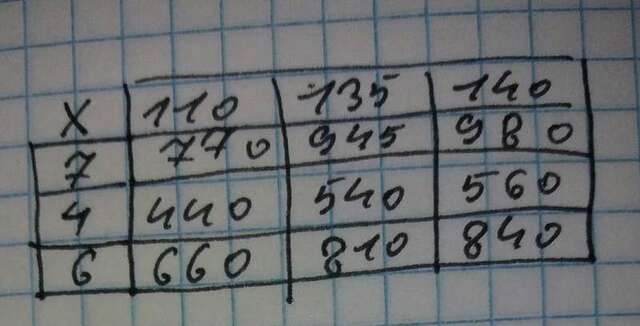 X 110 135 140
7 770 945 980
4 440 540 560
6 660 810 840